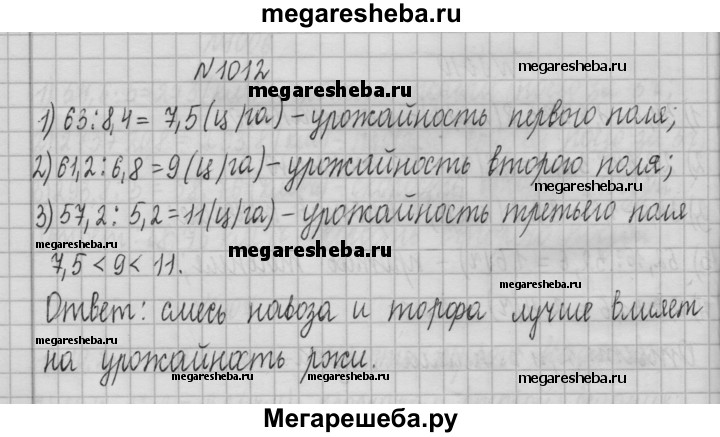 megaresheba.ru
№1012
megaresheba.ru
megaresheba.ru
1) 63:8,4= 7,5(ц/га)-урожайность первого поля;
megaresheba.ru
2) 61,2:6,8=9(ц/га)-урожайность второго поля;
megaresheba.ru
3) 57,2: 5,2=11(ц/га)-урожайность третьего поля
megaresheba.ru
megaresheba.ru
megaresheba.ru
7,5<9<11.
megaresheba.ru
Ответ: смесь навоза и торфа лучше влияет
megaresheba.ru
megaresheba.ru
на урожайность ржи.
megaresheba.ru
megaresheba.ru
Мегарешеба.ру